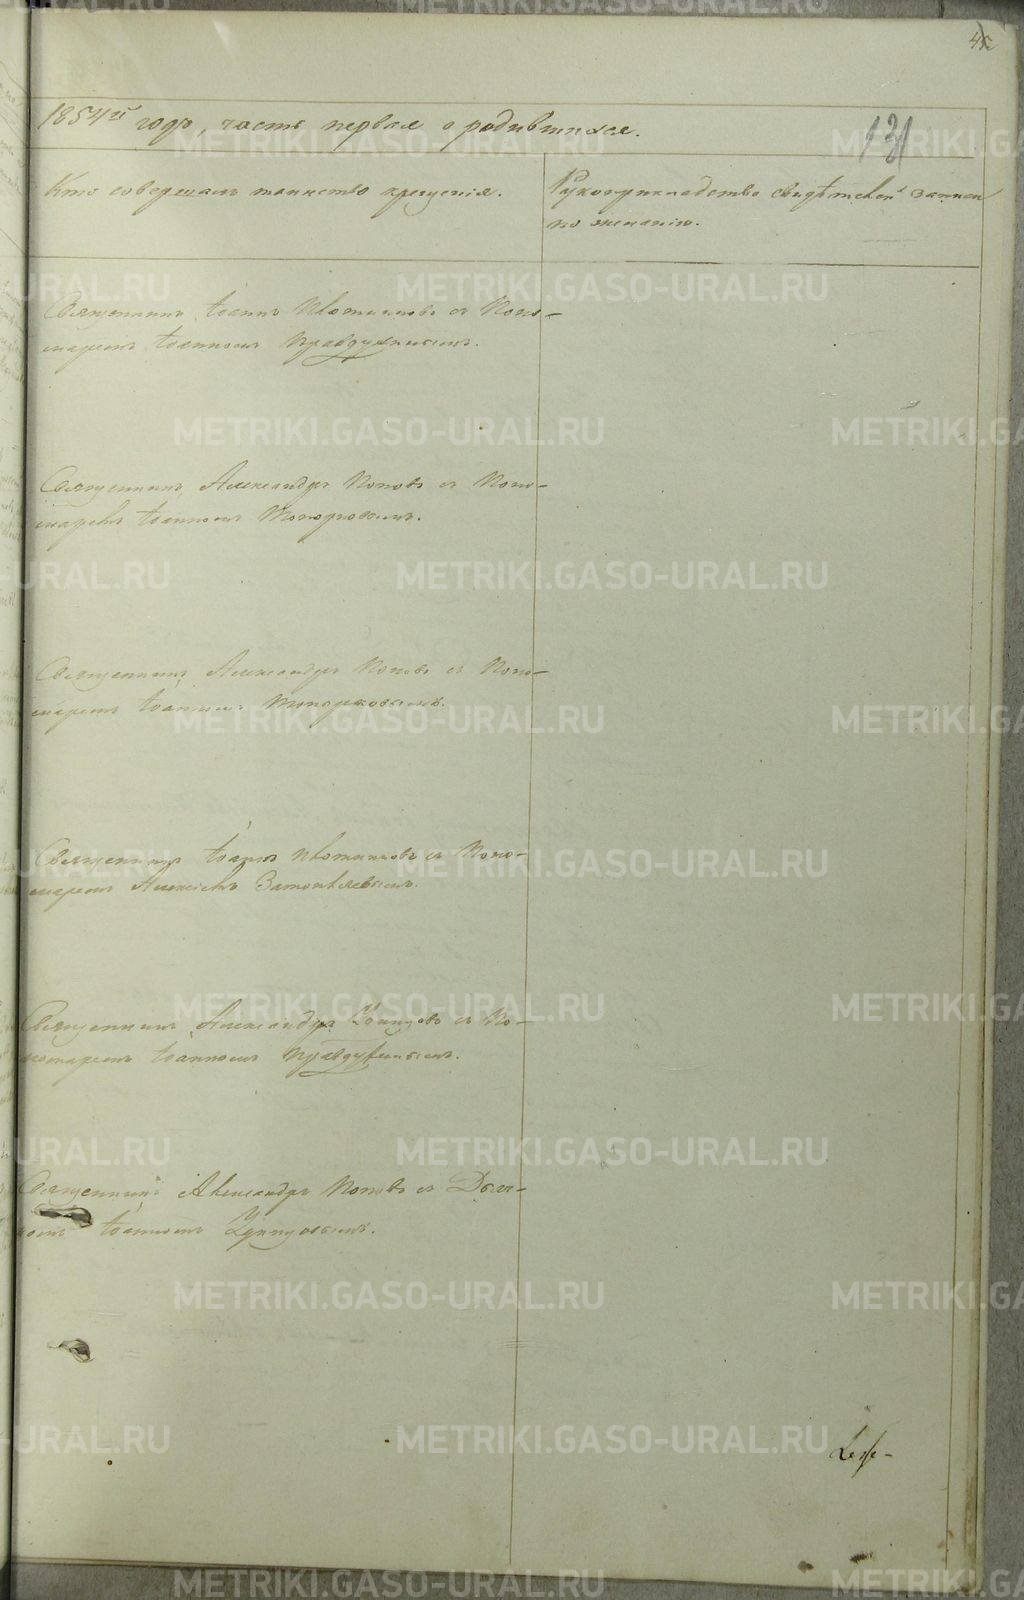 131
1854й годъ, часть первая о родившихся.
Кто совершалъ таинство крещенія.
Рукоприкладство свидѣтелей записи
по желанію.
Священникъ Іоаннъ Плотниковъ съ Поно-
маремъ Іоанномъ
Священникъ Александръ Поповъ съ Поно-
маремъ Іоанномъ Топорковымъ.
Священникъ Александръ Поповъ съ Поно-
маремъ Іоанномъ Топорковымъ.
Священникъ Іоаннъ Плотниковъ съ Поно-
маремъ Алексѣемъ
Священникъ Александръ съ По-
номаремъ Іоанномъ
Священникъ Александръ Поповъ съ Дьяч-
комъ Іоанномъ
METRIKI.GASO-URAL.RU